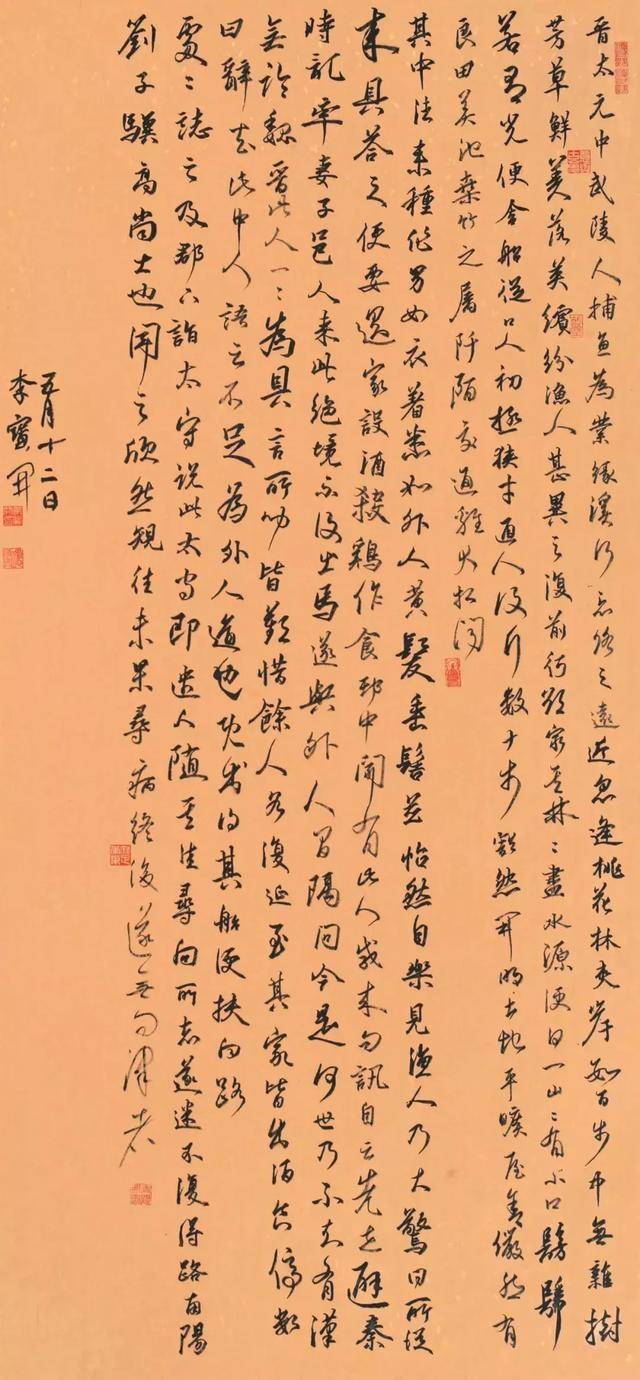 晉太元中武陵人捕魚為業緣溪行忘路之遠近忽逢桃花林夾岸數百步中無雜樹
芳草鮮美落英繽紛漁人甚異之復前行欲窮其林〻盡水源便得一山〻有小口髣髴
若有光便舍船從口入初極狹才通人復行數十步豁然開朗土地平曠屋舍儼然有
良田美池桑竹之屬阡陌交通雞犬相聞
其中往來種作男女衣著悉如外人黃髮垂髫並怡然自樂見漁人乃大驚問所從
來具答之便要還家設酒殺鷄作食邨中聞有此人咸來問訊自云先世避秦
時亂率妻子邑人來此絕境不復出焉遂與外人間隔問今是何世乃不知有漢
無論魏晉此人一〻為具言所聞皆歎惜餘人各復延至其家皆出酒食停數
日辭去此中人語云不足為外人道也既出得其船便扶向路
處〻誌之及郡下詣太守說此太守即遣人隨其往尋向所志遂迷不復得路南陽
劉子驥高尚士也聞之欣然規往未果尋病終後遂無問津者
五月十二日
李寶開